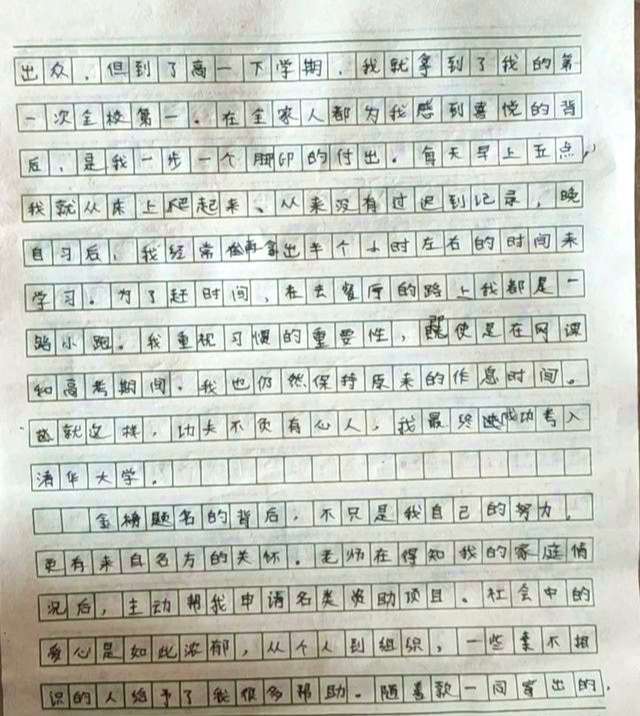 出众，但到了高一下学期，我就拿到了我的第
一次全校第一。在全家人都为我感到喜悦的背
后，是我一步一个脚印的付出。每天早上五点，
我就从床上爬起来、从来没有过迟到记录，晚
自习后，我经常会再拿出半个小时左右的时间来
学习。为了赶时间，在去餐厅的路上我都是一
路小跑。我重视习惯的重要性，即使是在网课
和高考期间，我也仍然保持原来的作息时间。
就这样，功夫不负有心人，我最终成功考入
清华大学。
金榜题名的背后，不只是我自己的努力，
更有来自各方的关怀。老师在得知我的家庭情
况后，主动帮我申请各类资助项目。社会中的
爱心是如此浓郁，从个人到组织，一些素不相
识的人给予了我很多帮助。随着款一同寄出的，